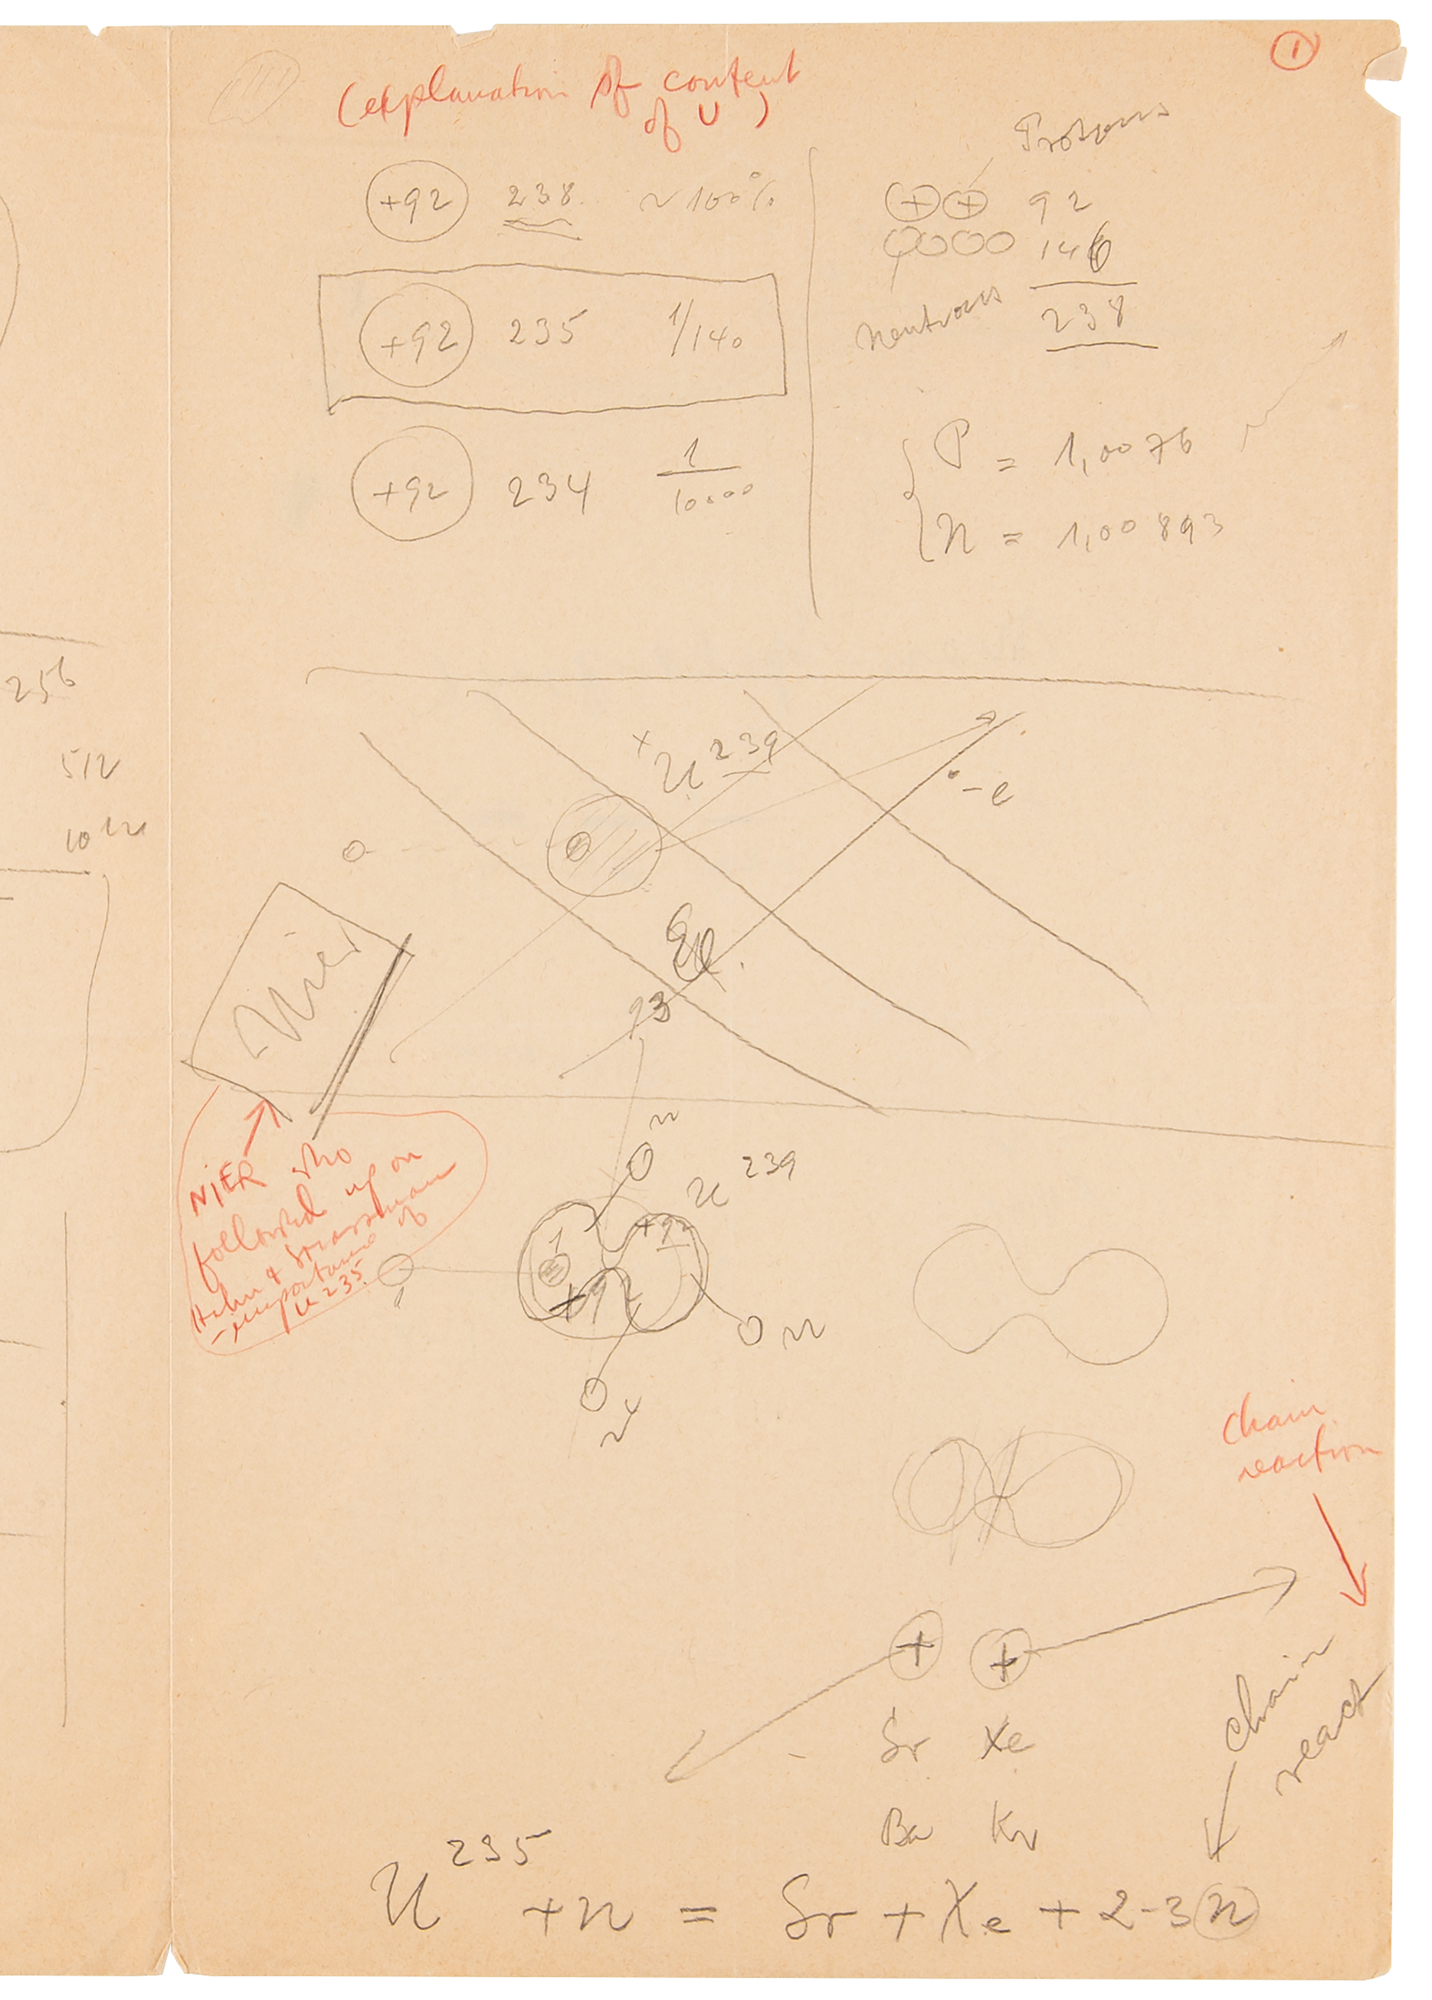 1
(explanation of content
of U)
+92 238 ~100%
+92 235 1/140
+92 234 1/10000
Protons
+ + 92
146
neutrons 238
P = 1,0076
n = 1,00893
256
512
1012
U 239
-e
93
Nier
NIER who
followed up on
Hahn & Strassman
- importance of
U 235
n
U 239
+92
1
+92
n
n
1
chain
reaction
+ +
Sr Xe
Ba Kr
chain
react
U 235 + n = Sr + Xe + 2-3 n